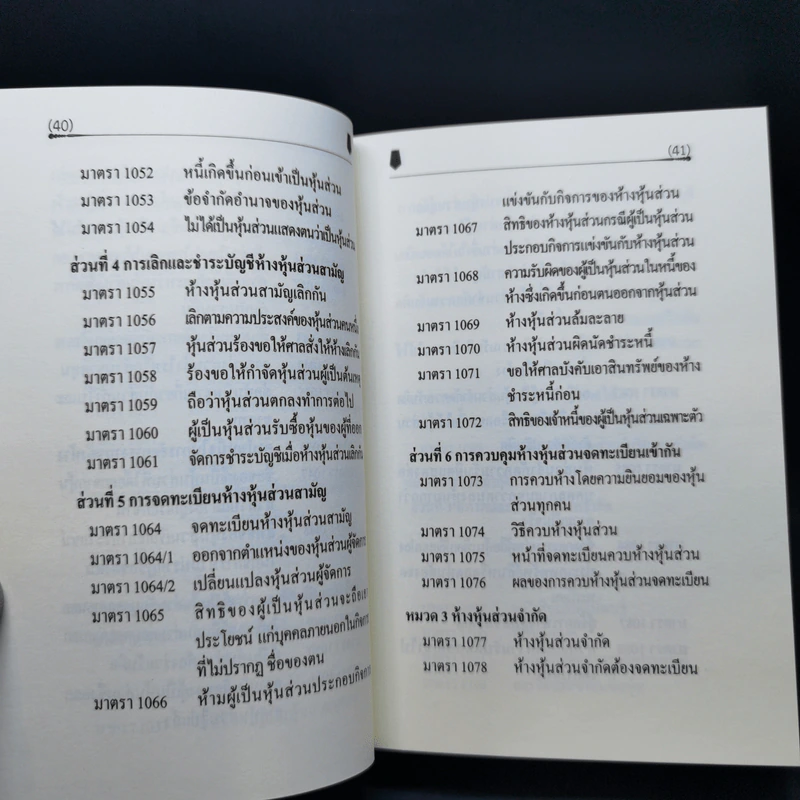 (40)
มาตรา 1052 หนี้เกิดขึ้นก่อนเข้าเป็นหุ้นส่วน
มาตรา 1053 ข้อจำกัดอำนาจของหุ้นส่วน
มาตรา 1054 ไม่ได้เป็นหุ้นส่วนแสดงตนว่าเป็นหุ้นส่วน
ส่วนที่ 4 การเลิกและชำระบัญชีห้างหุ้นส่วนสามัญ
มาตรา 1055 ห้างหุ้นส่วนสามัญเลิกกัน
มาตรา 1056 เลิกตามความประสงค์ของหุ้นส่วนคนหนึ่ง
มาตรา 1057 หุ้นส่วนร้องขอให้ศาลสั่งให้ห้างเลิกกัน
มาตรา 1058 ร้องขอให้กำจัดหุ้นส่วนผู้เป็นต้นเหตุ
มาตรา 1059 ถือว่าหุ้นส่วนตกลงทำการต่อไป
มาตรา 1060 ผู้เป็นหุ้นส่วนรับซื้อหุ้นของผู้ที่ออก
มาตรา 1061 จัดการชำระบัญชีเมื่อห้างหุ้นส่วนเลิกกัน
ส่วนที่ 5 การจดทะเบียนห้างหุ้นส่วนสามัญ
มาตรา 1064 จดทะเบียนห้างหุ้นส่วนสามัญ
มาตรา 1064/1 ออกจากตำแหน่งของหุ้นส่วนผู้จัดการ
มาตรา 1064/2 เปลี่ยนแปลงหุ้นส่วนผู้จัดการ
มาตรา 1065 สิทธิของผู้เป็นหุ้นส่วนจะถือเอา
ประโยชน์ แก่บุคคลภายนอกในกิจการ
ที่ไม่ปรากฏ ชื่อของตน
มาตรา 1066 ห้ามผู้เป็นหุ้นส่วนประกอบกิจการ
(41)
แข่งขันกับกิจการของห้างหุ้นส่วน
มาตรา 1067 สิทธิของห้างหุ้นส่วนกรณีผู้เป็นหุ้นส่วน
ประกอบกิจการแข่งขันกับห้างหุ้นส่วน
มาตรา 1068 ความรับผิดของผู้เป็นหุ้นส่วนในหนี้ของ
ห้างซึ่งเกิดขึ้นก่อนตนออกจากหุ้นส่วน
มาตรา 1069 ห้างหุ้นส่วนล้มละลาย
มาตรา 1070 ห้างหุ้นส่วนผิดนัดชำระหนี้
มาตรา 1071 ขอให้ศาลบังคับเอาสินทรัพย์ของห้าง
ชำระหนี้ก่อน
มาตรา 1072 สิทธิของเจ้าหนี้ของผู้เป็นหุ้นส่วนเฉพาะตัว
ส่วนที่ 6 การควบคุมห้างหุ้นส่วนจดทะเบียนเข้ากัน
มาตรา 1073 การควบห้างโดยความยินยอมของหุ้น
ส่วนทุกคน
มาตรา 1074 วิธีควบห้างหุ้นส่วน
มาตรา 1075 หน้าที่จดทะเบียนควบห้างหุ้นส่วน
มาตรา 1076 ผลของการควบห้างหุ้นส่วนจดทะเบียน
หมวด 3 ห้างหุ้นส่วนจำกัด
มาตรา 1077 ห้างหุ้นส่วนจำกัด
มาตรา 1078 ห้างหุ้นส่วนจำกัดต้องจดทะเบียน